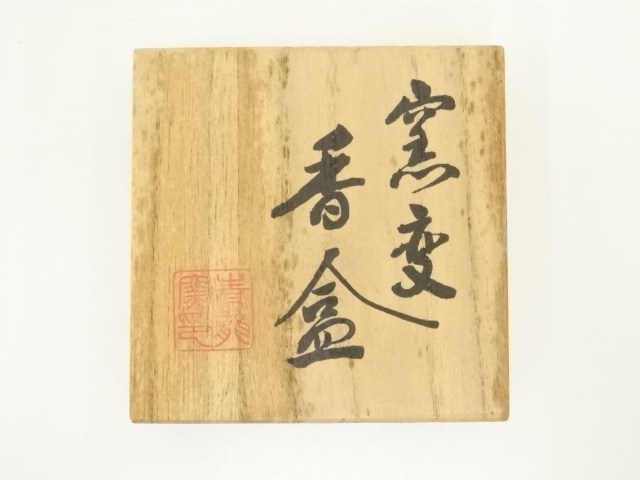 窯変
香盒